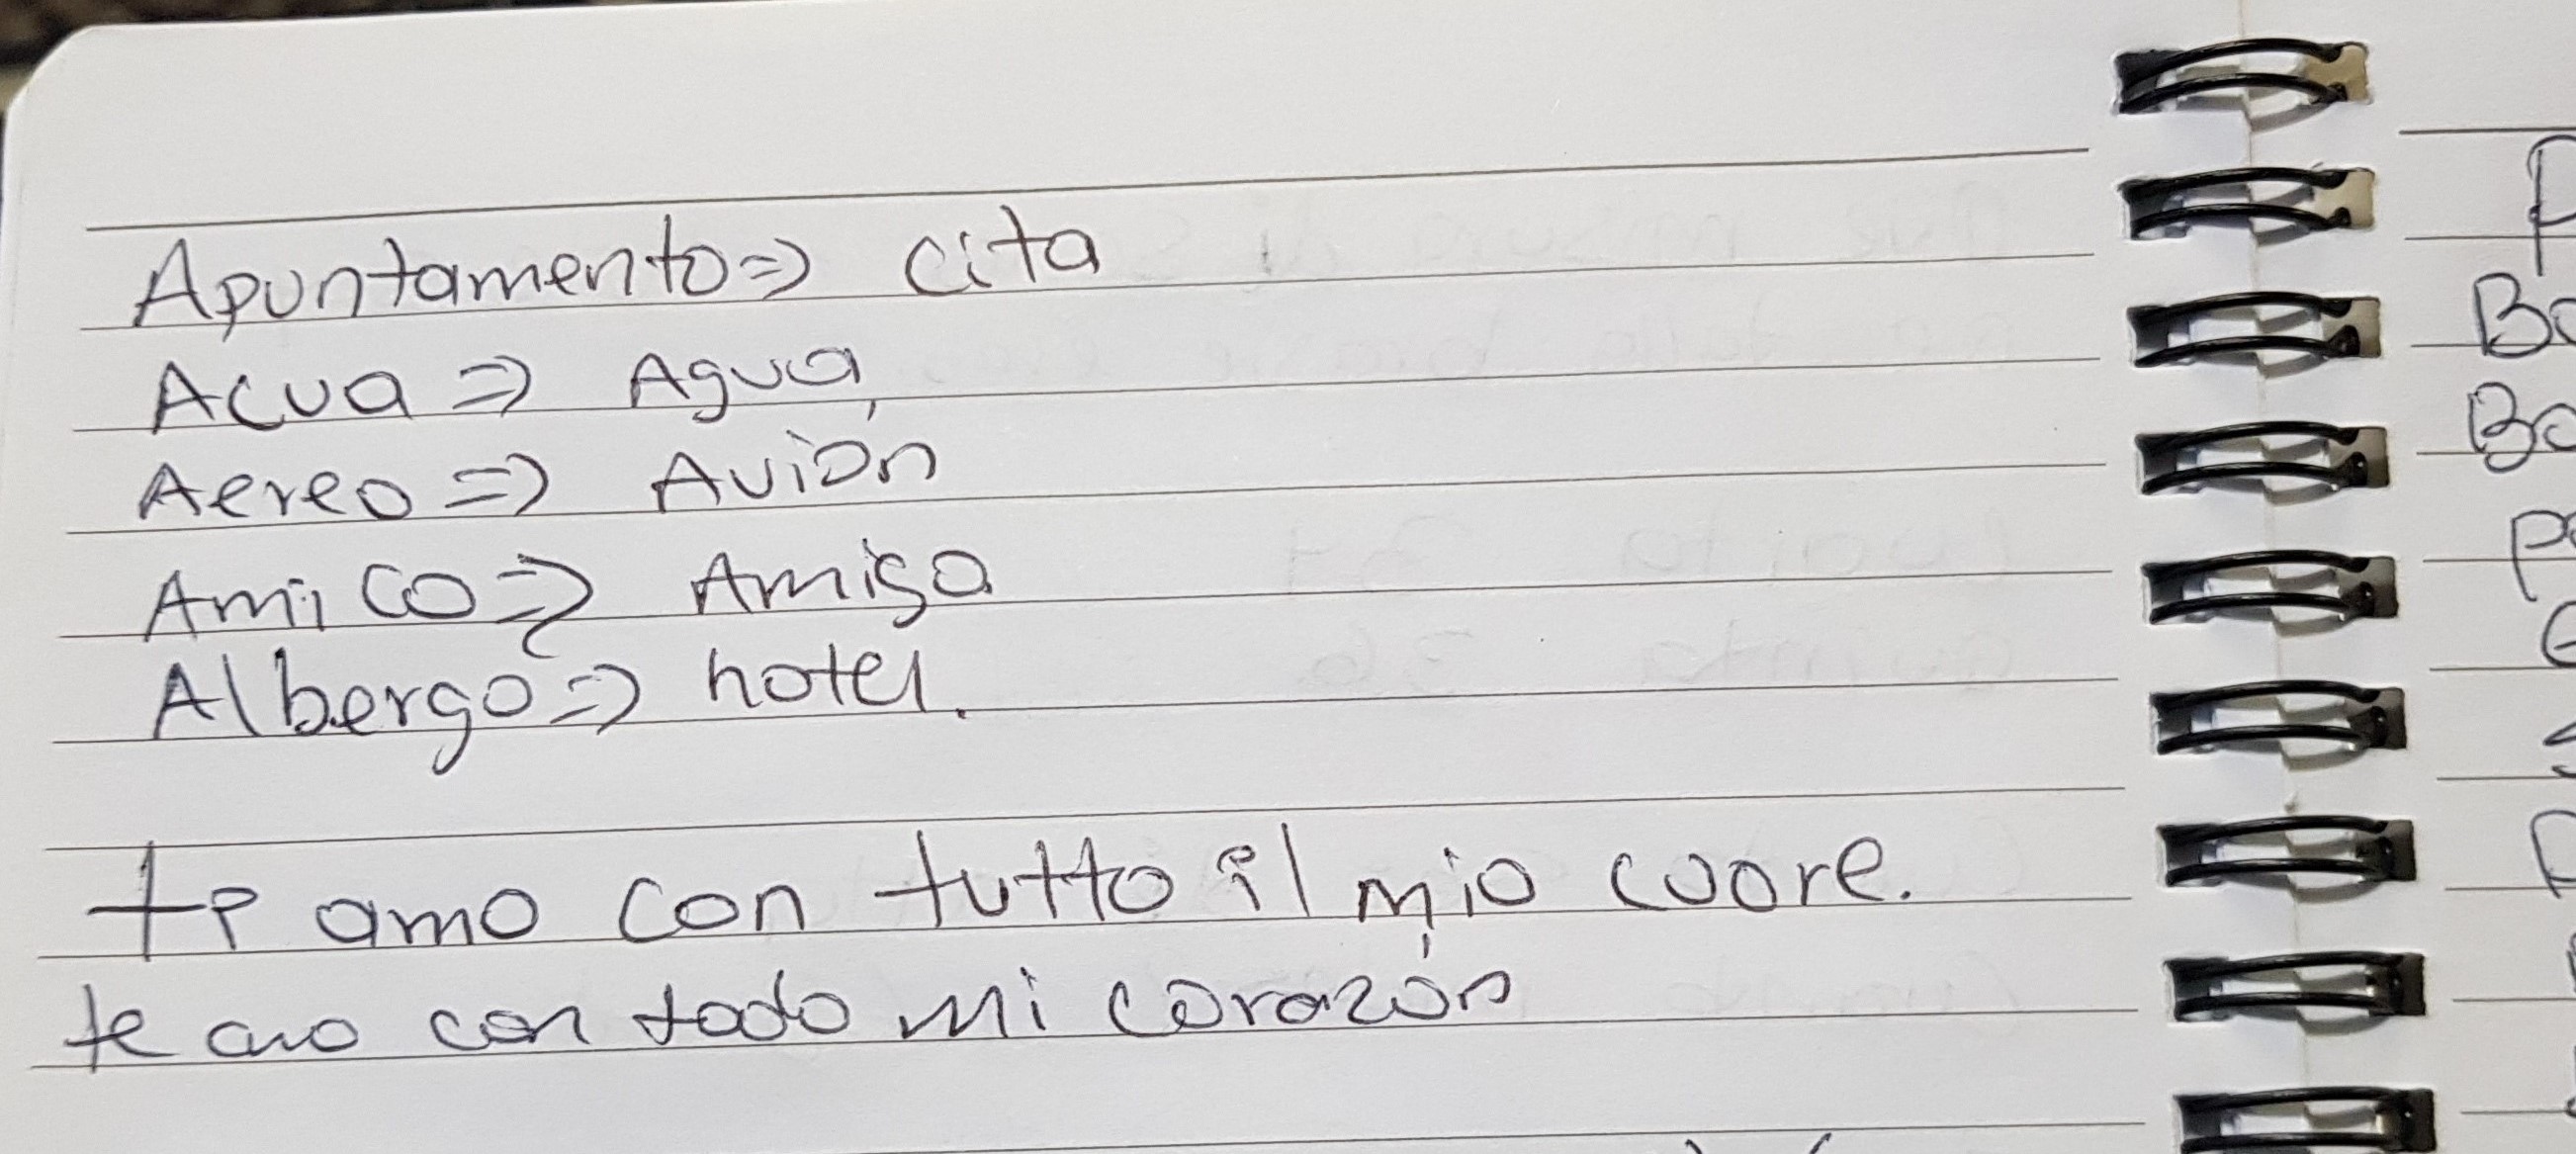 Apuntamento => cita
Acua => Agua
Aereo => Avión
Amico => Amigo
Albergo => hotel.
te amo con tutto il mio cuore.
te amo con todo mi corazón